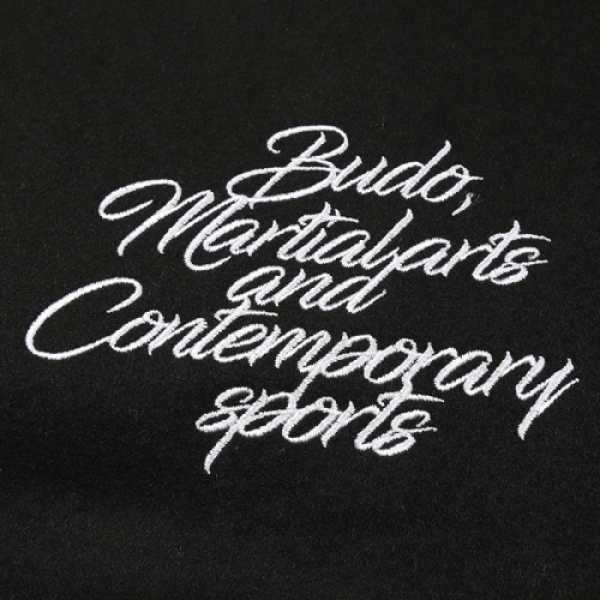 Budo,
Martial arts
and
Contemporary
sports